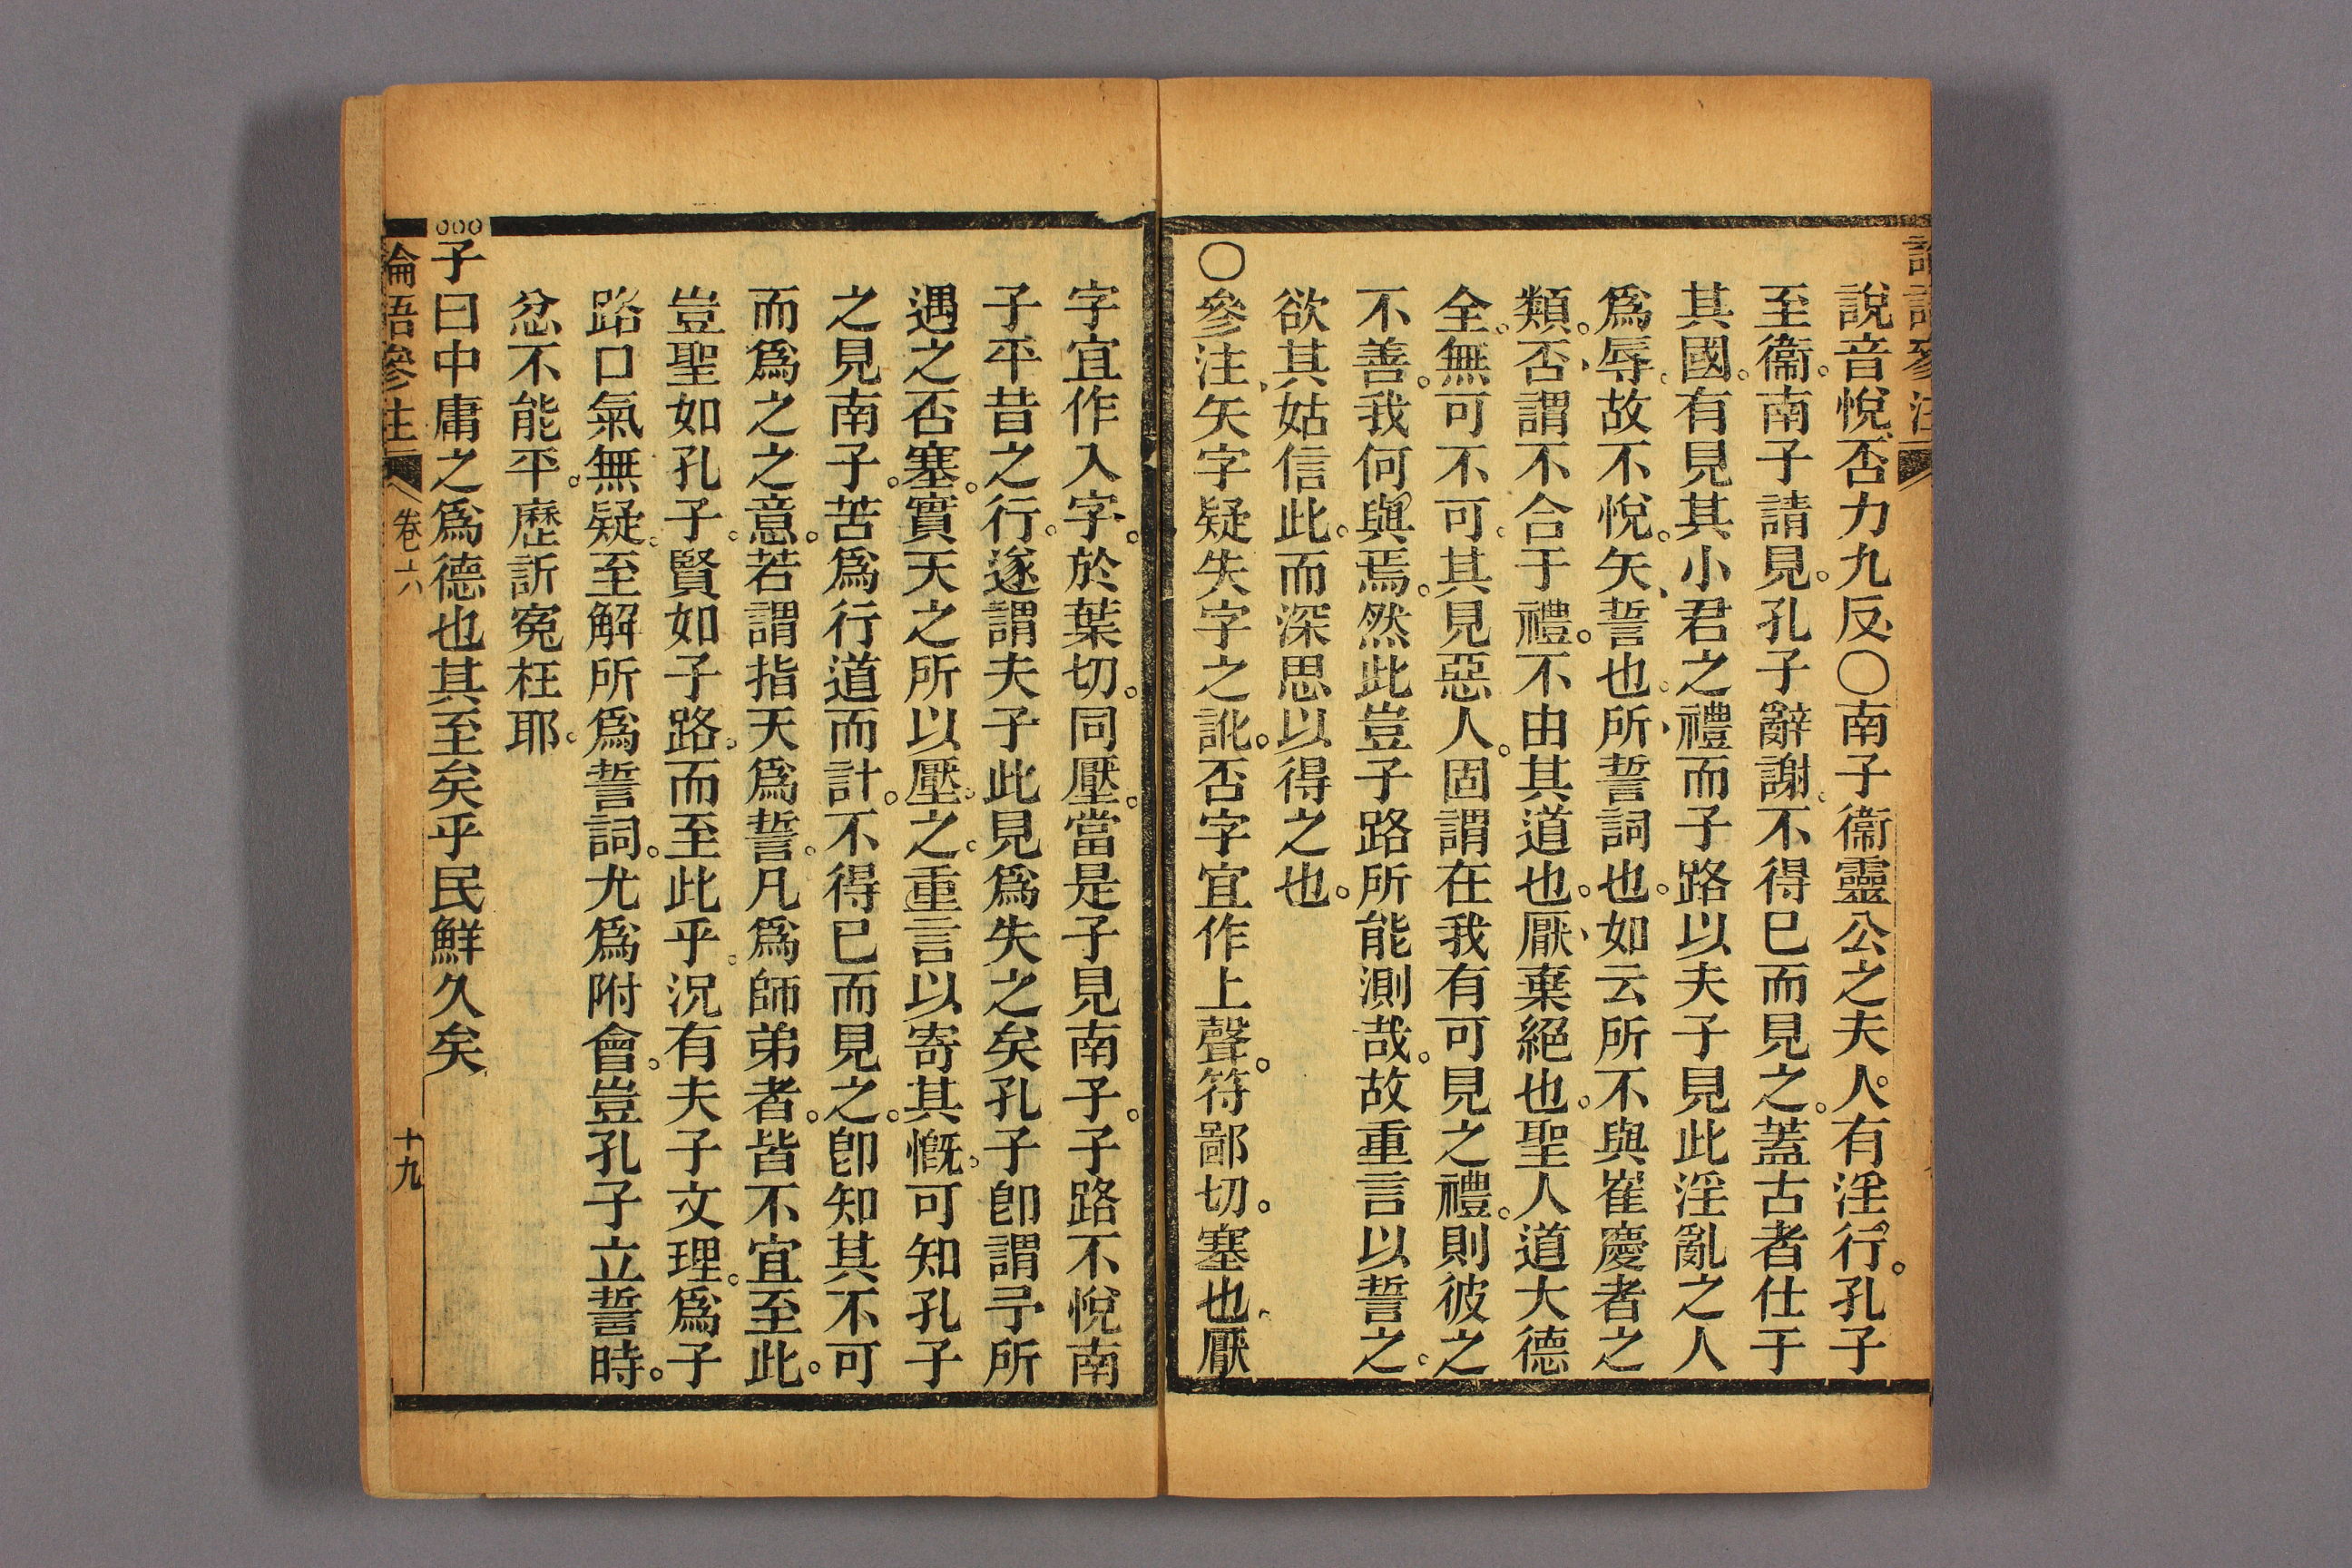 說音悅、否力九反、〇南子衞靈公之夫人。有淫行。孔子
至衞。南子請見。孔子辭謝。不得已而見之。蓋古者仕于
其國。有見其小君之禮而子路以夫子見此淫亂之人
爲辱。故不悅。矢、誓也。所、誓詞也。如云所不與崔慶者之
類。否、謂不合于禮。不由其道也。厭、棄絕也。聖人道大德
全。無可不可。其見惡人。固謂在我有可見之禮。則彼之
不善。我何與焉。然此豈子路所能測哉。故重言以誓之。
欲其姑信此。而深思以得之也。
〇參注、矢字疑失字之訛。否字宜作上聲。符鄙切。塞也。厭
字宜作入字。於葉切。同壓。當是子見南子。子路不悅南
子平昔之行。遂謂夫子此見爲失之矣孔子卽謂予所
遇之否塞。實天之所以壓之。重言以寄其慨。可知孔子
之見南子。苦爲行道而計。不得已而見之。卽知其不可
而爲之之意。若謂指天爲誓。凡爲師弟者。皆不宜至此。
豈聖如孔子。賢如子路。而至此乎。況有夫子文理。爲子
路口氣無疑。至解所爲誓詞。尤爲附會。豈孔子立誓時。
忿不能平。歷訴寃枉耶。
子曰中庸之爲德也其至矣乎民鮮久矣
論語參注
卷六
十九